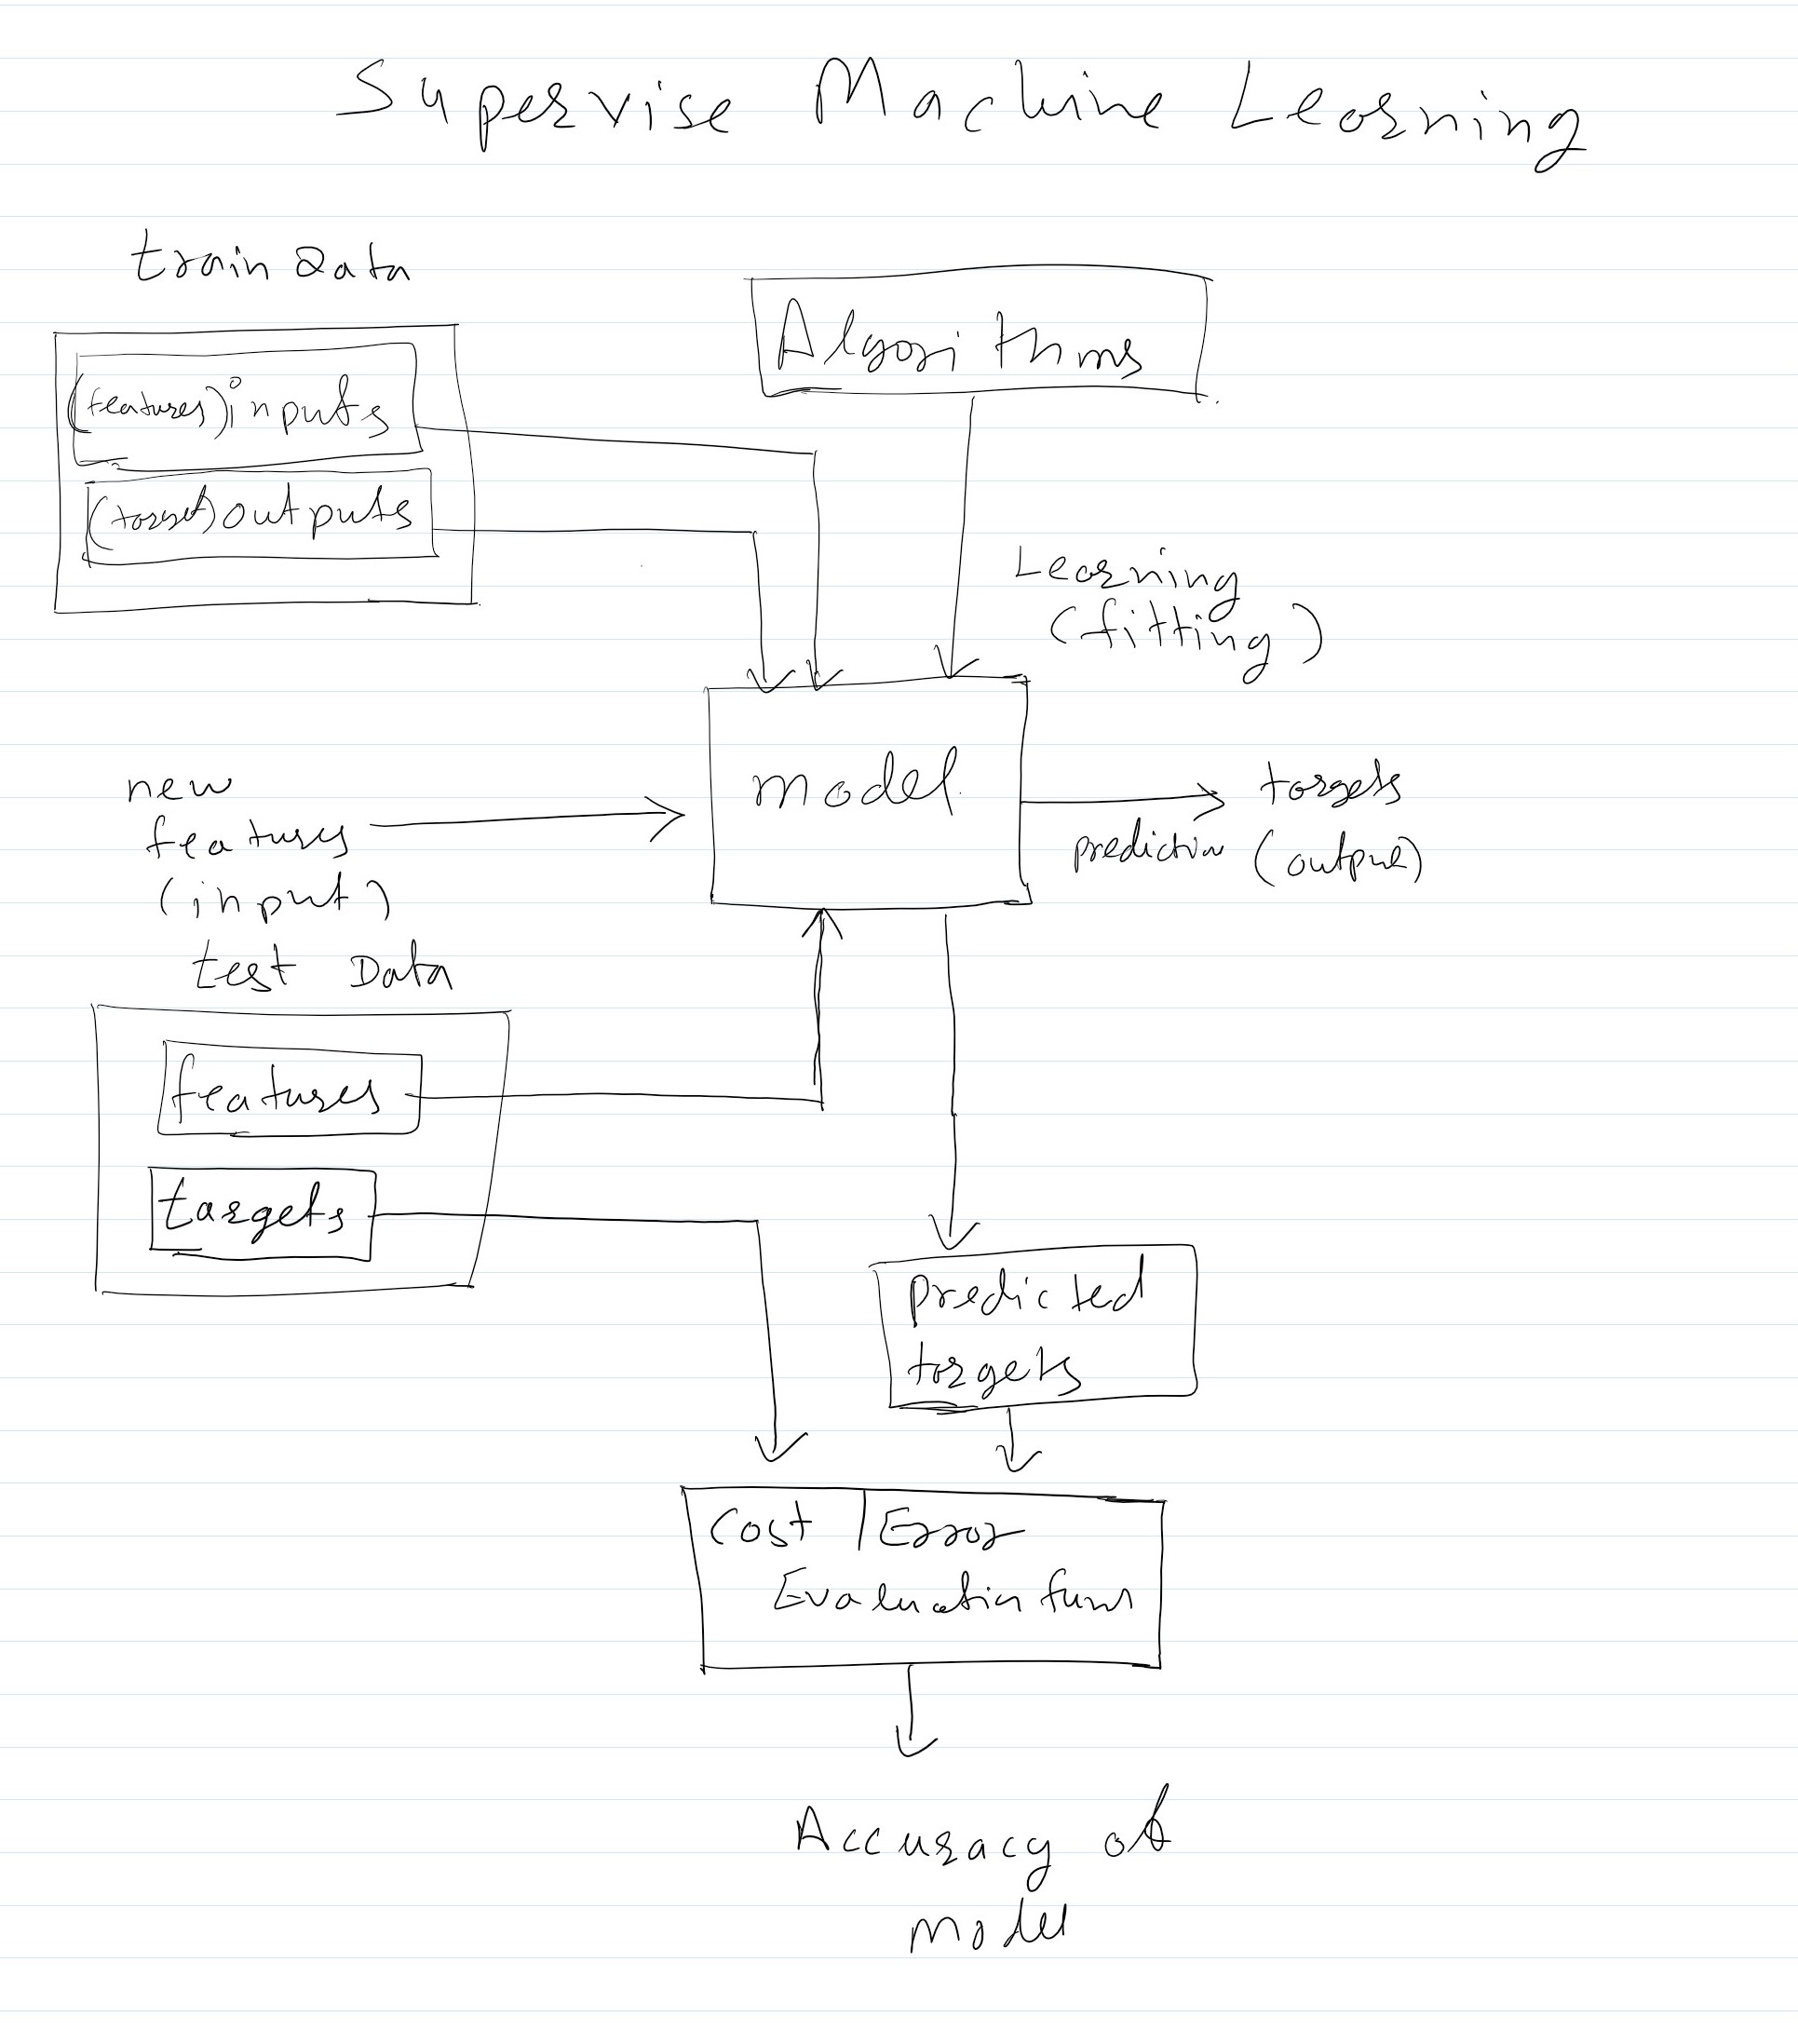 Supervise Machine Learning
train Data
Algorithms
(features) inputs
(target) outputs
Learning
(fitting)
model
new
features
(input)
targets
prediction (output)
test Data
features
targets
predicted
targets
Cost / Error
Evaluation func
Accuracy of
model